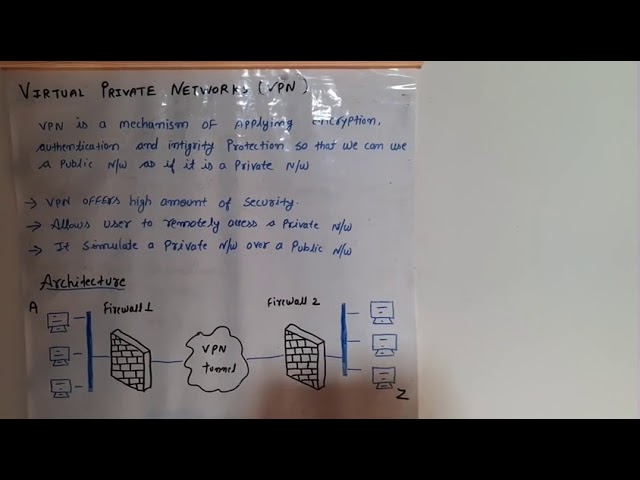 VIRTUAL PRIVATE NETWORKS (VPN)
VPN is a mechanism of applying encryption,
authentication and intigrity Protection so that we can use
a Public N/w as if it is a Private N/w
→ VPN offers high amount of security.
→ Allows user to remotely access a Private N/w
→ It simulate a Private N/w over a Public N/w
Architecture
A
Firewall 1
Firewall 2
VPN
tunnel
Z